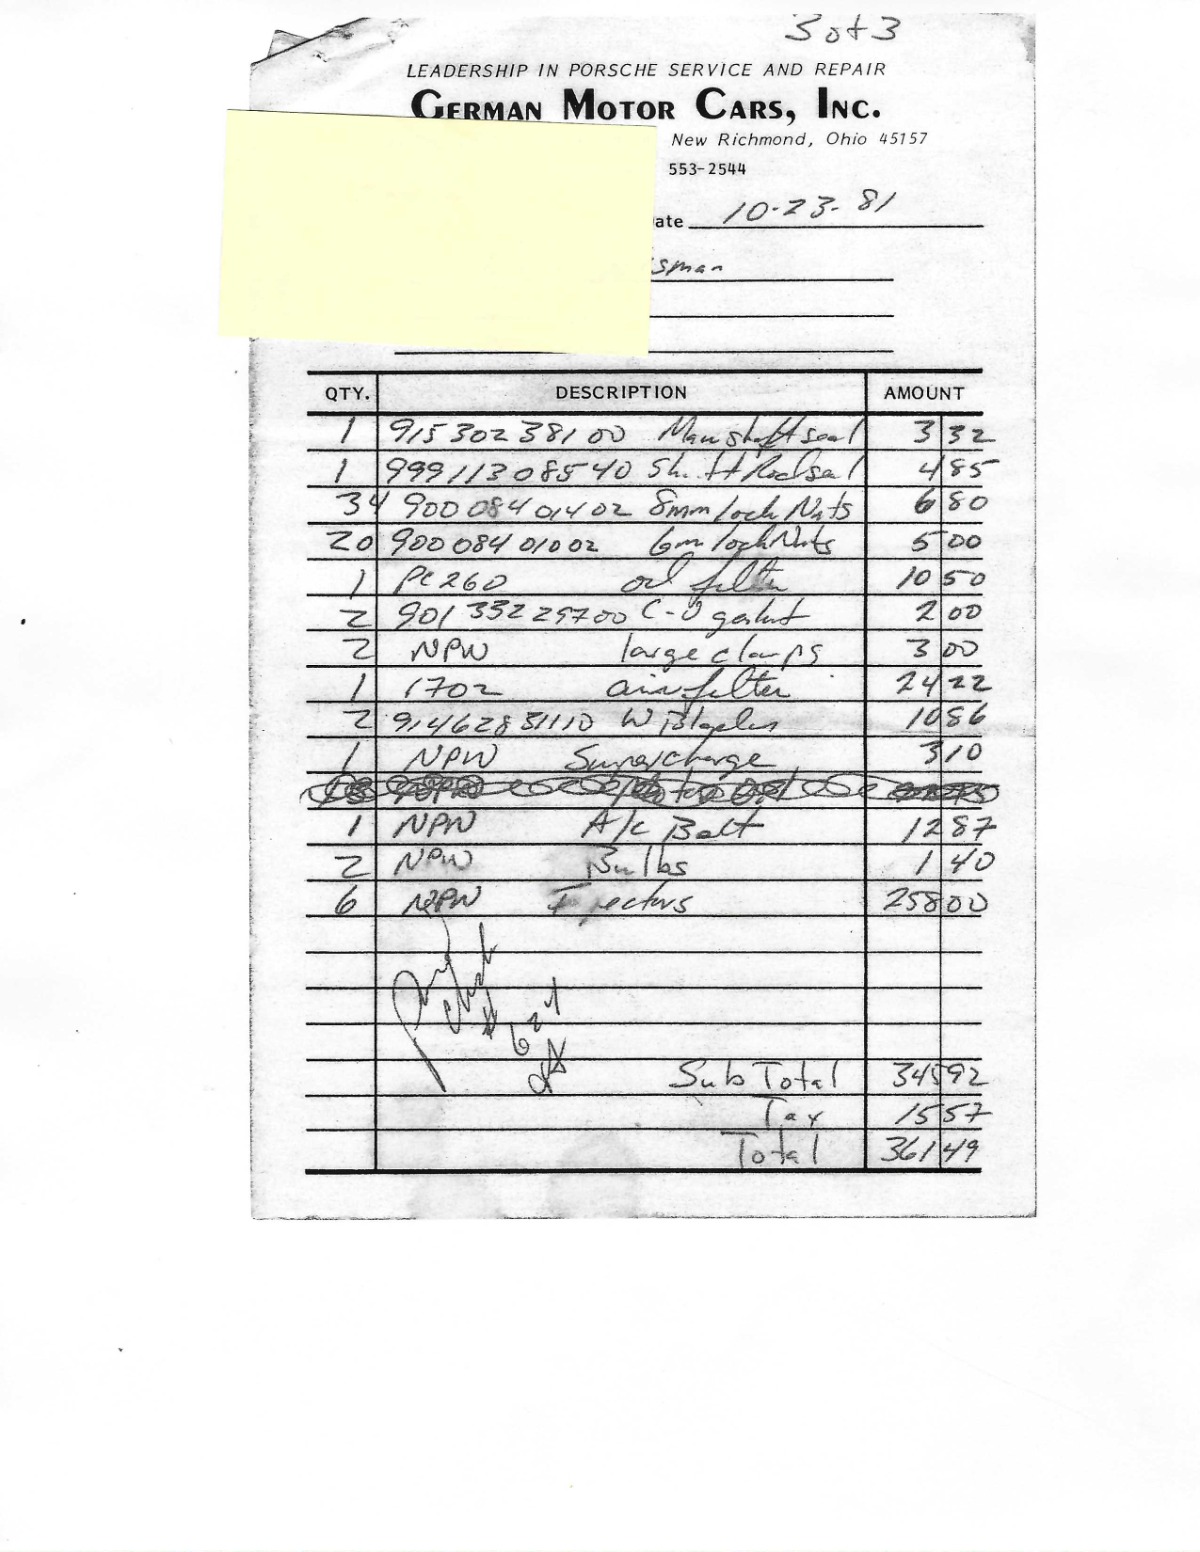 3 of 3
LEADERSHIP IN PORSCHE SERVICE AND REPAIR
GERMAN MOTOR CARS, INC.
New Richmond, Ohio 45157
553-2544
ate 10-23-81
sman
QTY. DESCRIPTION AMOUNT
1 915 302 381 00 Mainshaft seal 3 32
1 999 113 085 40 Shift Rod seal 4 85
34 900 084 014 02 8mm lock Nuts 6 80
20 900 084 010 02 6m lock Nuts 5 00
1 PC 260 oil filter 10 50
2 901 332 297 00 C-O gasket 2 00
2 NPW large clamps 3 00
1 1702 air filter 24 22
2 914 628 311 10 W Blades 10 86
1 NPW Supercharge 3 10
1 NPW A/c Belt 12 87
2 NPW Bulbs 1 40
6 NPW Injectors 258 00
Paid
Check
# 624
Sub Total 345 92
Tax 15 57
Total 361 49